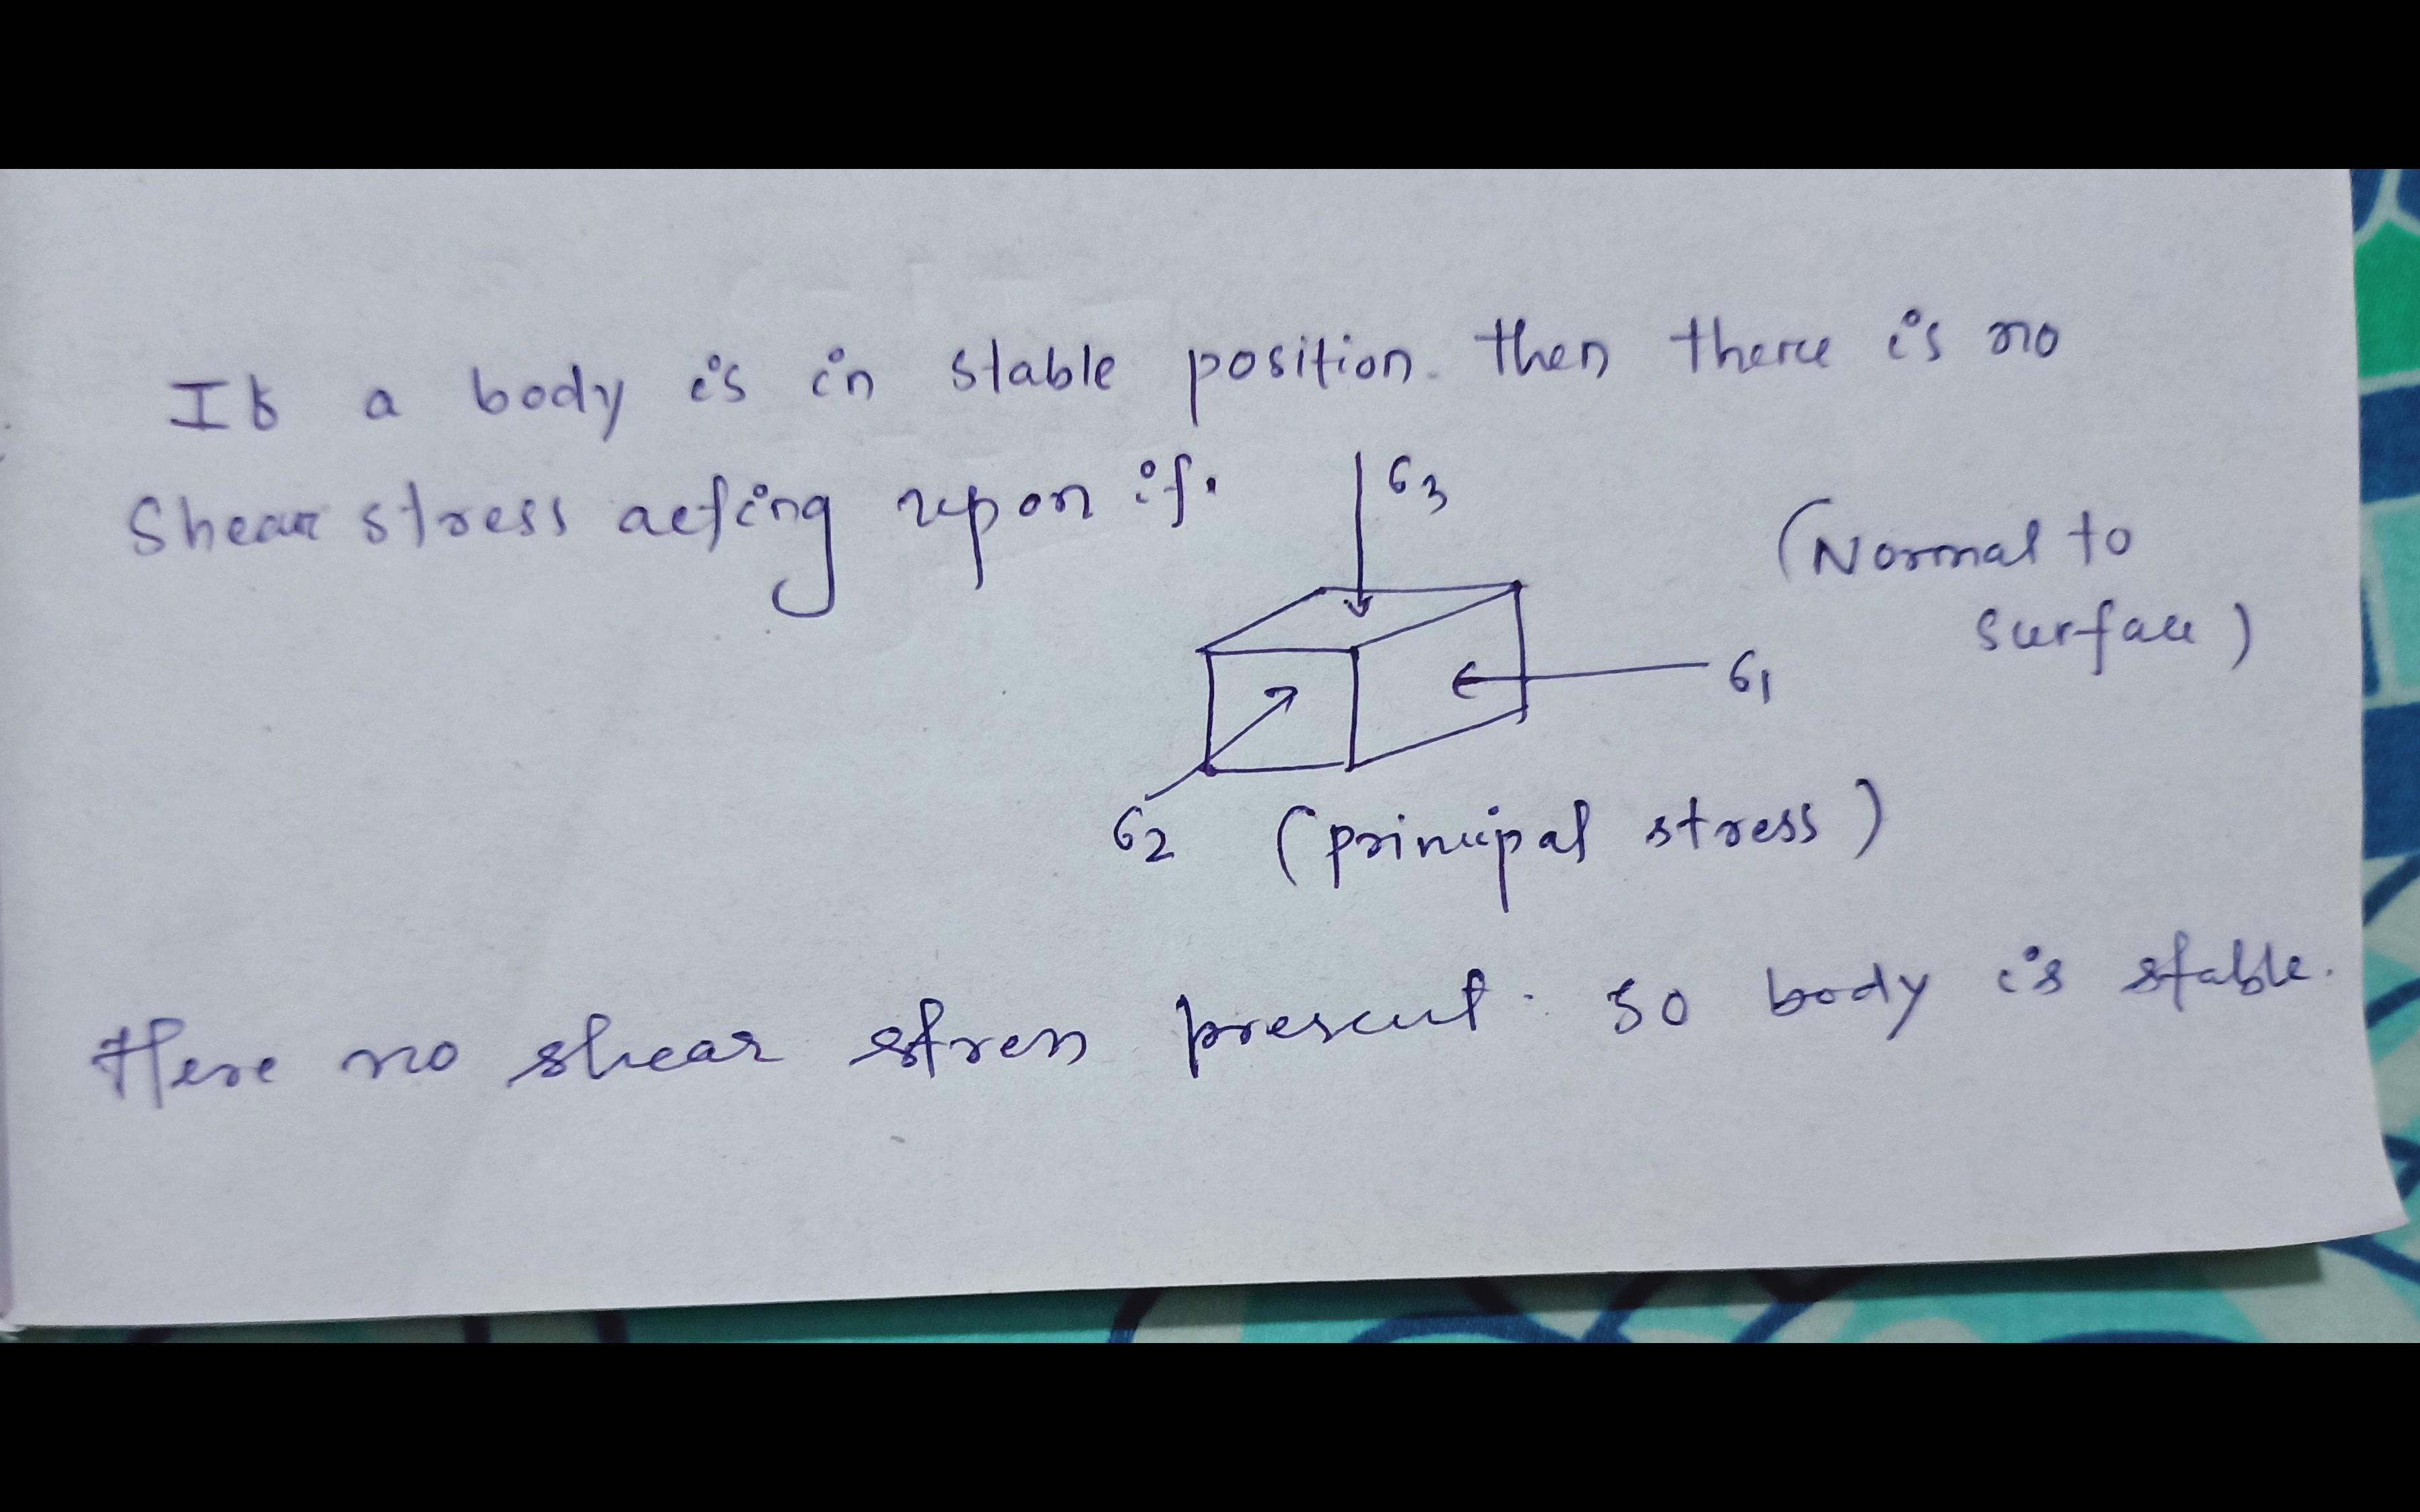 If a body is in stable position. then there is no
Shear stress acting upon it.
σ3
(Normal to
surface)
σ1
σ2
(principal stress)
Here no shear stress present. So body is stable.